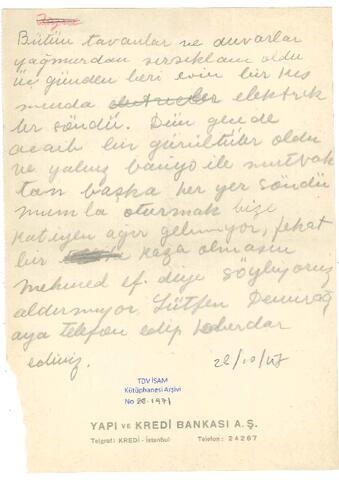 Bütün tavanlar ve duvarlar
yağmurdan sırsıklam oldu
üç günden beri evin bir kıs
mında elektrik
ler söndü. Dün gece de
acaib bir gürültüler oldu
ve yalnız banyo ile mutbak
tan başka her yer söndü
mumla oturmak bize
katiyen ağır gelmiyor, fakat
bir kaza olmasın
mehmed ef. diye söylüyoruz
aldırmıyor. Lütfen Demirağ
aya telefon edip haberdar
ediniz.
28/10/47
TDV İSAM
Kütüphanesi Arşivi
No 2E-1971
YAPI ve KREDİ BANKASI A. Ş.
Telgraf: KREDİ - İstanbul Telefon: 24267